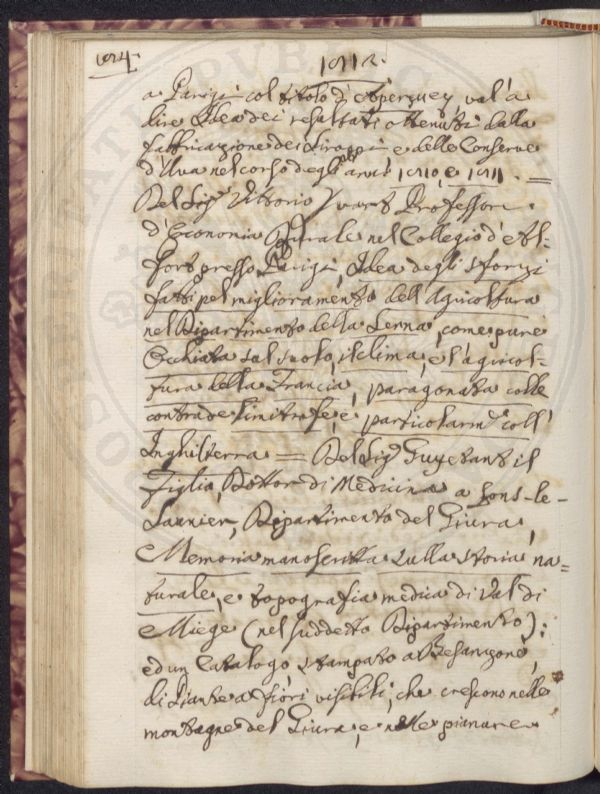 1812.
a Parigi col titolo d'Aperçuey, val'a
dire Idea dei resultati ottenuti dalla
fabbricazione dei Siroppi e delle Conserve
d'Uva nel corso degli anni 1810, e 1811. =
Del Sig.r Vittorio Yvart Professore
d'Economia Rurale nel Collegio d'Al-
fort presso Parigi, Idea degli sforzi
fatti pel miglioramento dell'Agricoltura
nel Dipartimento della Senna, come pure
Occhiata sul suolo, il clima, e l'agricol-
tura della Francia, paragonata colle
contrade limitrofe, e particolarm.te coll'
Inghilterra = Del Sig.r Guyetant il
Figlio, Dottor di Medicina a Lons-le-
Saunier, Dipartimento del Giura,
Memoria manoscritta sulla storia na=
turale, e topografia medica di Val di
Miege (nel suddetto Dipartimento);
ed un Catalogo stampato a Besanzone,
di Piante a fiori visibili, che crescono nelle
montagne del Giura, e nelle pianure